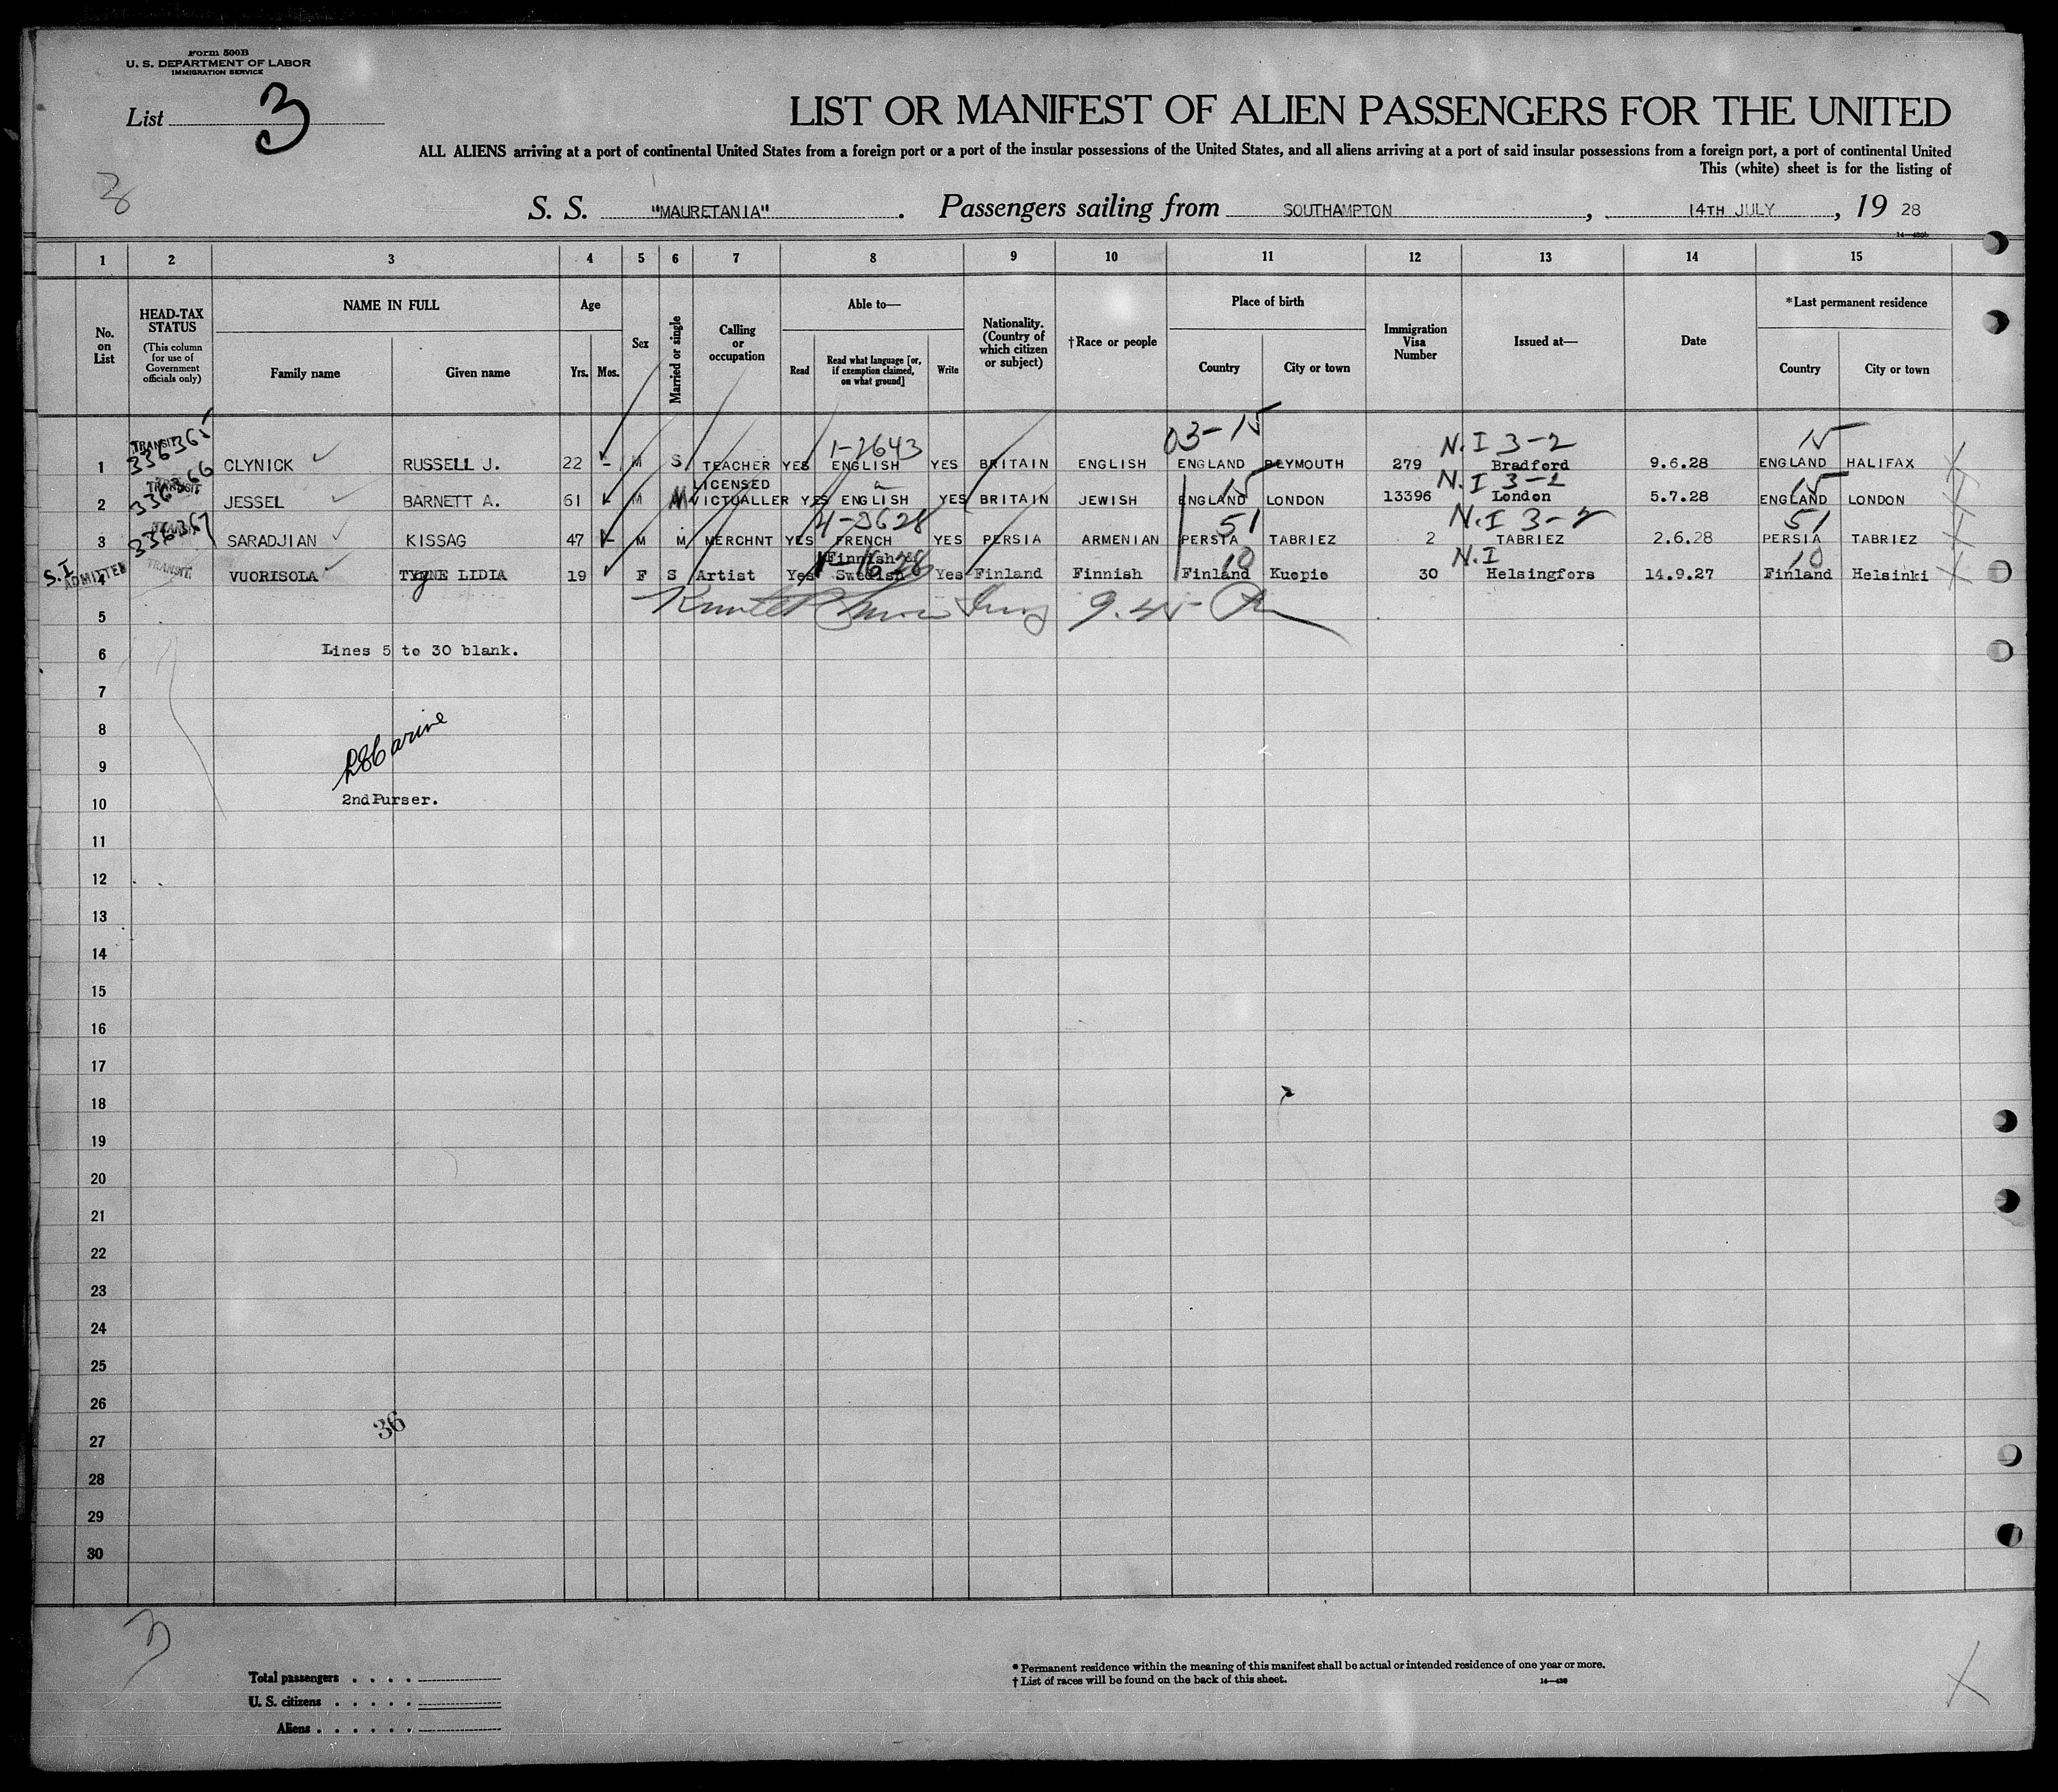 Form 500B
U. S. DEPARTMENT OF LABOR
IMMIGRATION SERVICE
List 3
LIST OR MANIFEST OF ALIEN PASSENGERS FOR THE UNITED
ALL ALIENS arriving at a port of continental United States from a foreign port or a port of the insular possessions of the United States, and all aliens arriving at a port of said insular possessions from a foreign port, a port of continental United
This (white) sheet is for the listing of
S. S. "MAURETANIA". Passengers sailing from SOUTHAMPTON, 14TH JULY, 19 28
1 2 3 4 5 6 7 8 9 10 11 12 13 14 15
No. on List
HEAD-TAX STATUS
(This column for use of Government officials only)
NAME IN FULL
Family name Given name
Age
Yrs. Mos.
Sex
Married or single
Calling or occupation
Able to—
Read
Read what language [or, if exemption claimed, on what ground]
Write
Nationality. (Country of which citizen or subject)
†Race or people
Place of birth
Country City or town
Immigration Visa Number
Issued at—
Date
*Last permanent residence
Country City or town
TRANSIT 336365 1-2643 03-15 N.I 3-2 15
1 CLYNICK RUSSELL J. 22 - M S TEACHER YES ENGLISH YES BRITAIN ENGLISH ENGLAND PLYMOUTH 279 Bradford 9.6.28 ENGLAND HALIFAX
TRANSIT 336366 15 N.I 3-2 15
2 JESSEL BARNETT A. 61 M M LICENSED VICTUALLER YES ENGLISH YES BRITAIN JEWISH ENGLAND LONDON 13396 London 5.7.28 ENGLAND LONDON
336367 4-2628 51 N.I 3-2 51
3 SARADJIAN KISSAG 47 - M M MERCHNT YES FRENCH YES PERSIA ARMENIAN PERSIA TABRIEZ 2 TABRIEZ 2.6.28 PERSIA TABRIEZ
S.I ADMITTED TRANSIT 10 N.I 10
4 VUORISOLA TYYNE LIDIA 19 F S Artist Yes Finnish & Swedish Yes Finland Finnish Finland Kuopio 30 Helsingfors 14.9.27 Finland Helsinki
5
6 Lines 5 to 30 blank.
7
8
9
10 2nd Purser.
11
12
13
14
15
16
17
18
19
20
21
22
23
24
25
26
36
27
28
29
30
3
Total passengers . . . .
U. S. citizens . . . . .
Aliens . . . . . .
* Permanent residence within the meaning of this manifest shall be actual or intended residence of one year or more.
† List of races will be found on the back of this sheet.